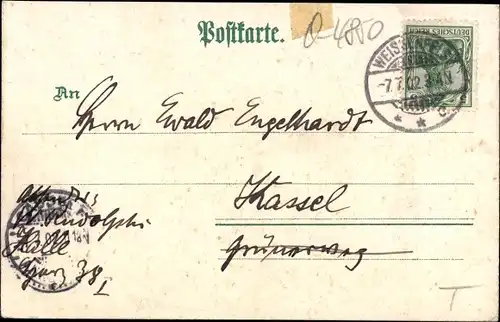 Postkarte.
Q-4850
DEUTSCHES REICH
WEISSENFELS
-7.7.02 3-4N
An
Herrn Ewald Engelhardt
Kassel
Grünerweg
Rudolphi
Halle
Harz 38 I
T